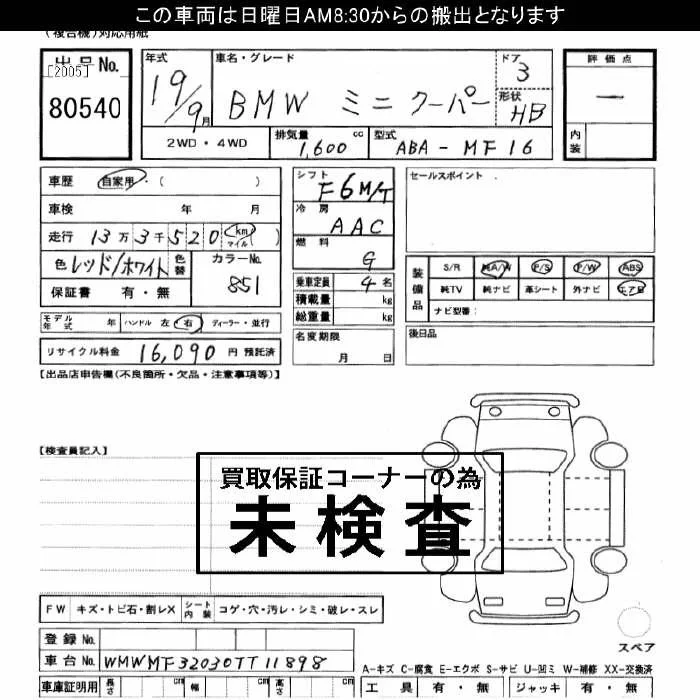 この車両は日曜日AM8:30からの搬出となります
(複合機)対応用紙
出品No.
[2005]
80540
年式
19/9月
車名・グレード
BMW ミニ クーパー
ドア
3
形状
HB
評価点
ー
内装
2WD・4WD
排気量
1,600 cc
型式
ABA-MF16
車歴 自家用・( )
車検 年 月
走行 13万3千520 (km マイル)
色 レッド/ホワイト 色替
カラーNo.
851
保証書 有・無
シフト
F6M/T
冷房
AAC
燃料
G
乗車定員 4名
積載量 kg
総重量 kg
セールスポイント
装備品
S/R 純A/W P/S P/W ABS
純TV 純ナビ 革シート 外ナビ エアB
ナビ型番:
モデル年式 年 ハンドル 左 右 ディーラー・並行
リサイクル料金 16,090 円 預託済
名変期限
月 日
後日品
【出品店申告欄(不良箇所・欠品・注意事項等)】
【検査員記入】
買取保証コーナーの為
未検査
FW キズ・トビ石・割レX シート内装 コゲ・穴・汚レ・シミ・破レ・スレ
登録No.
車台No. WMWMF32030TT11898
スペア
A-キズ C-腐食 E-エクボ S-サビ U-凹ミ W-補修 XX-交換済
車庫証明用 長さ cm 幅 cm 高さ cm
工具 有・無 ジャッキ 有・無